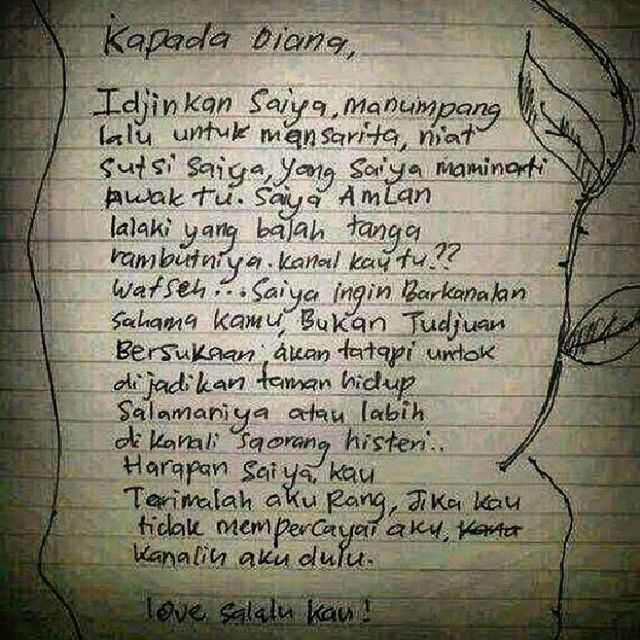 Kapada Diana,
Idjinkan Saiya, manumpang
lalu untuk mansarita, niat
sutsi saiya, yang saiya maminati
awak tu. Saiya AMLan
lalaki yang balah tanga
rambutniya. kanal kau tu??
Watseh... Saiya ingin Barkanalan
sahama kamu, Bukan Tudjuan
Bersukaan, akan tatapi untok
dijadikan taman hidup
Salamaniya atau labih
di kanali saorang histeri..
Harapan Saiya, kau
Tarimalah aku Rang, Jika kau
tidak mempercayai aku, kana
kanalin aku dulu.
love salalu kau!